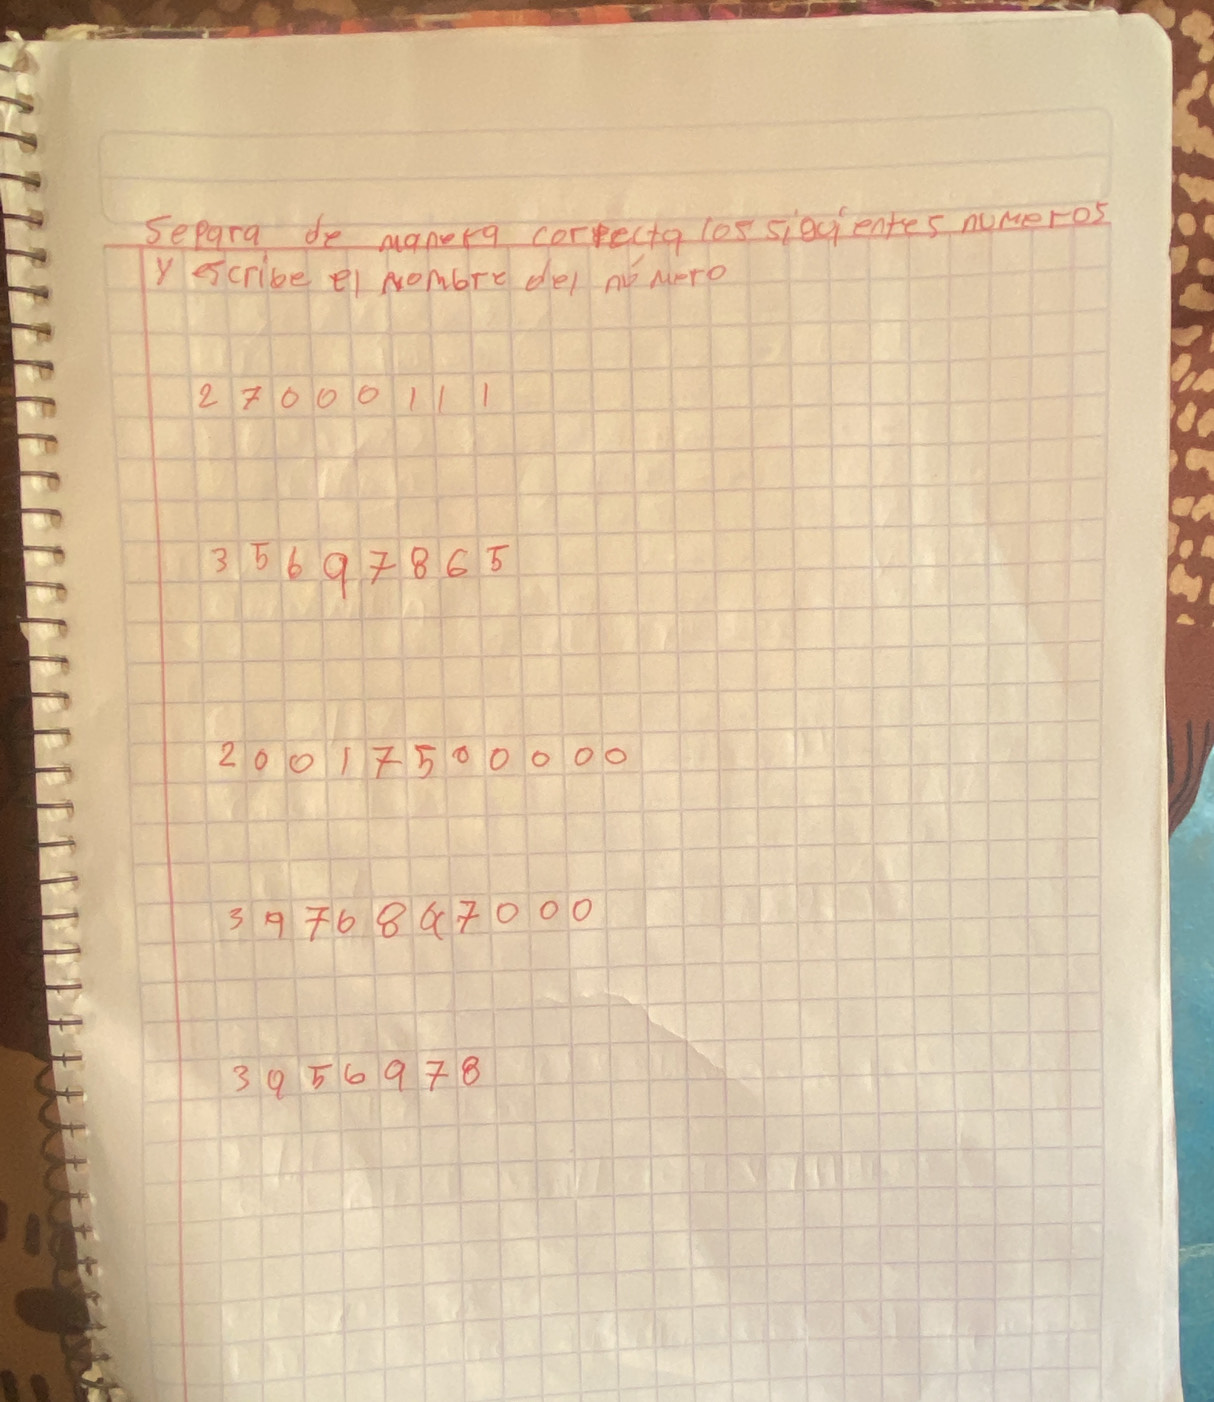 Separa de manera correcta los siguientes numeros
y escribe el nombre del número
27000111
35697865
20017500000
3976847000
3956978